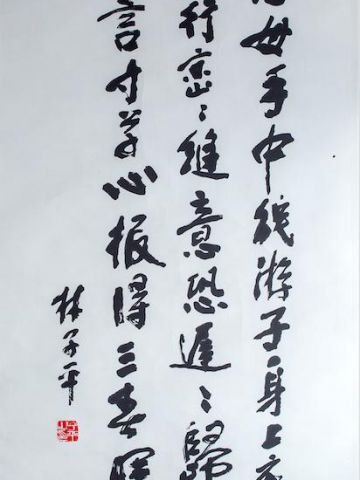 母手中线游子身上衣
行密〻縫意恐遲〻歸
言寸草心报得三春暉
林子平